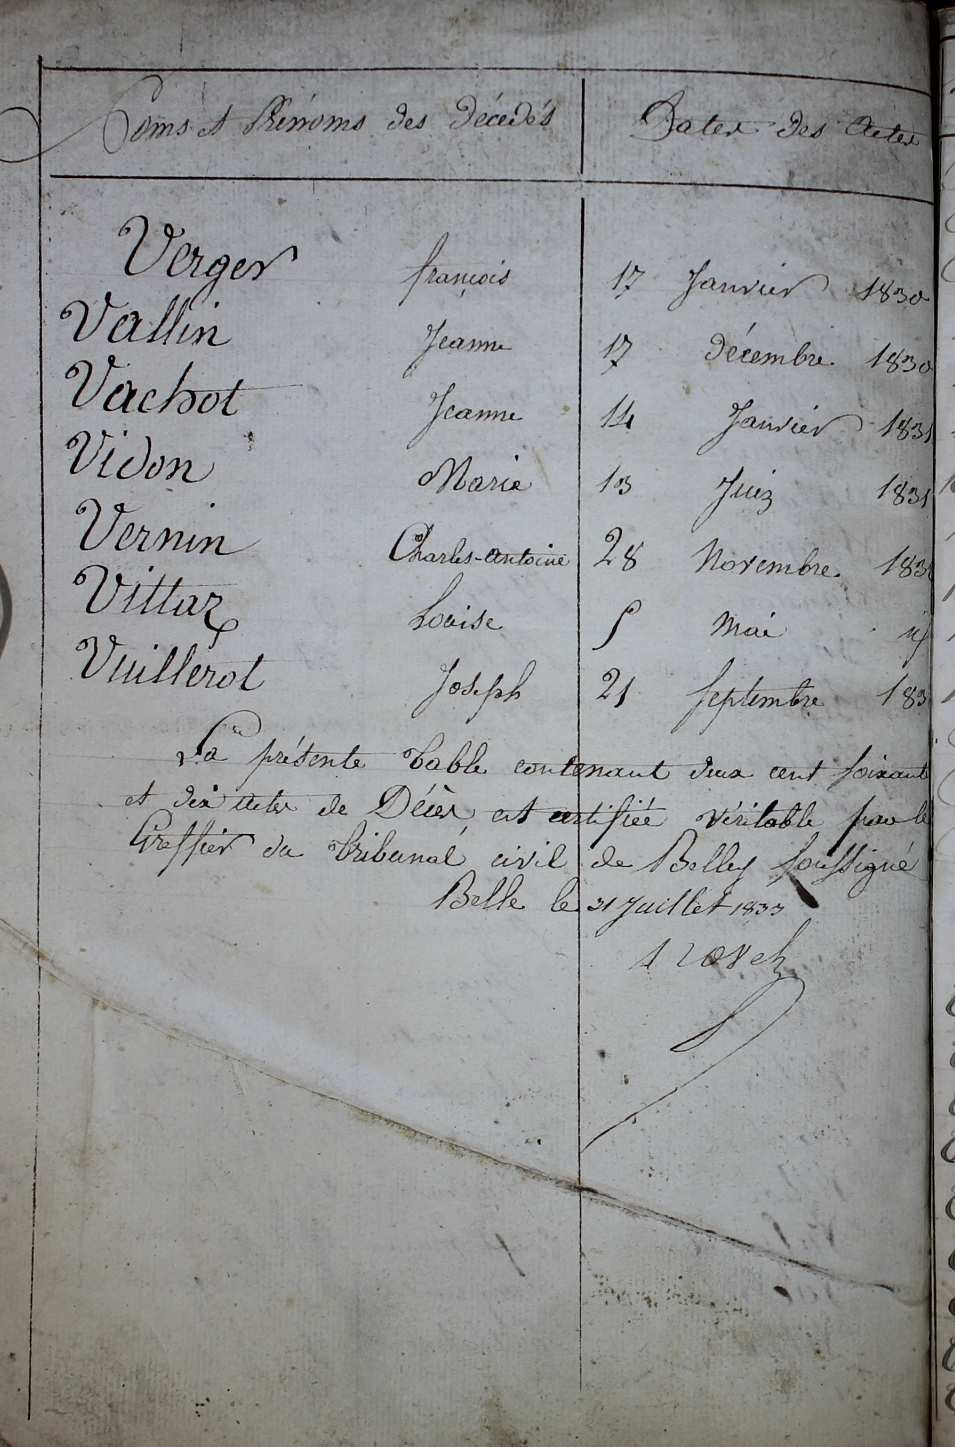 Noms et Prénoms des Décédés Dates des Actes
Verger françois 17 Janvier 1830
Vallin Jeanne 17 décembre 1830
Vachot Jeanne 14 Janvier 1831
Vidon Marie 13 Juin 1831
Vernin Charles-antoine 28 Novembre 183
Vittaz Louise 5 Mai
Vuillerot Joseph 21 Septembre 183
La présente Table contenant deux cent soixante
et dix actes de Décès est certifiée véritable par le
Greffier du Tribunal civil de Belley soussigné
Belle le 31 Juillet 1833